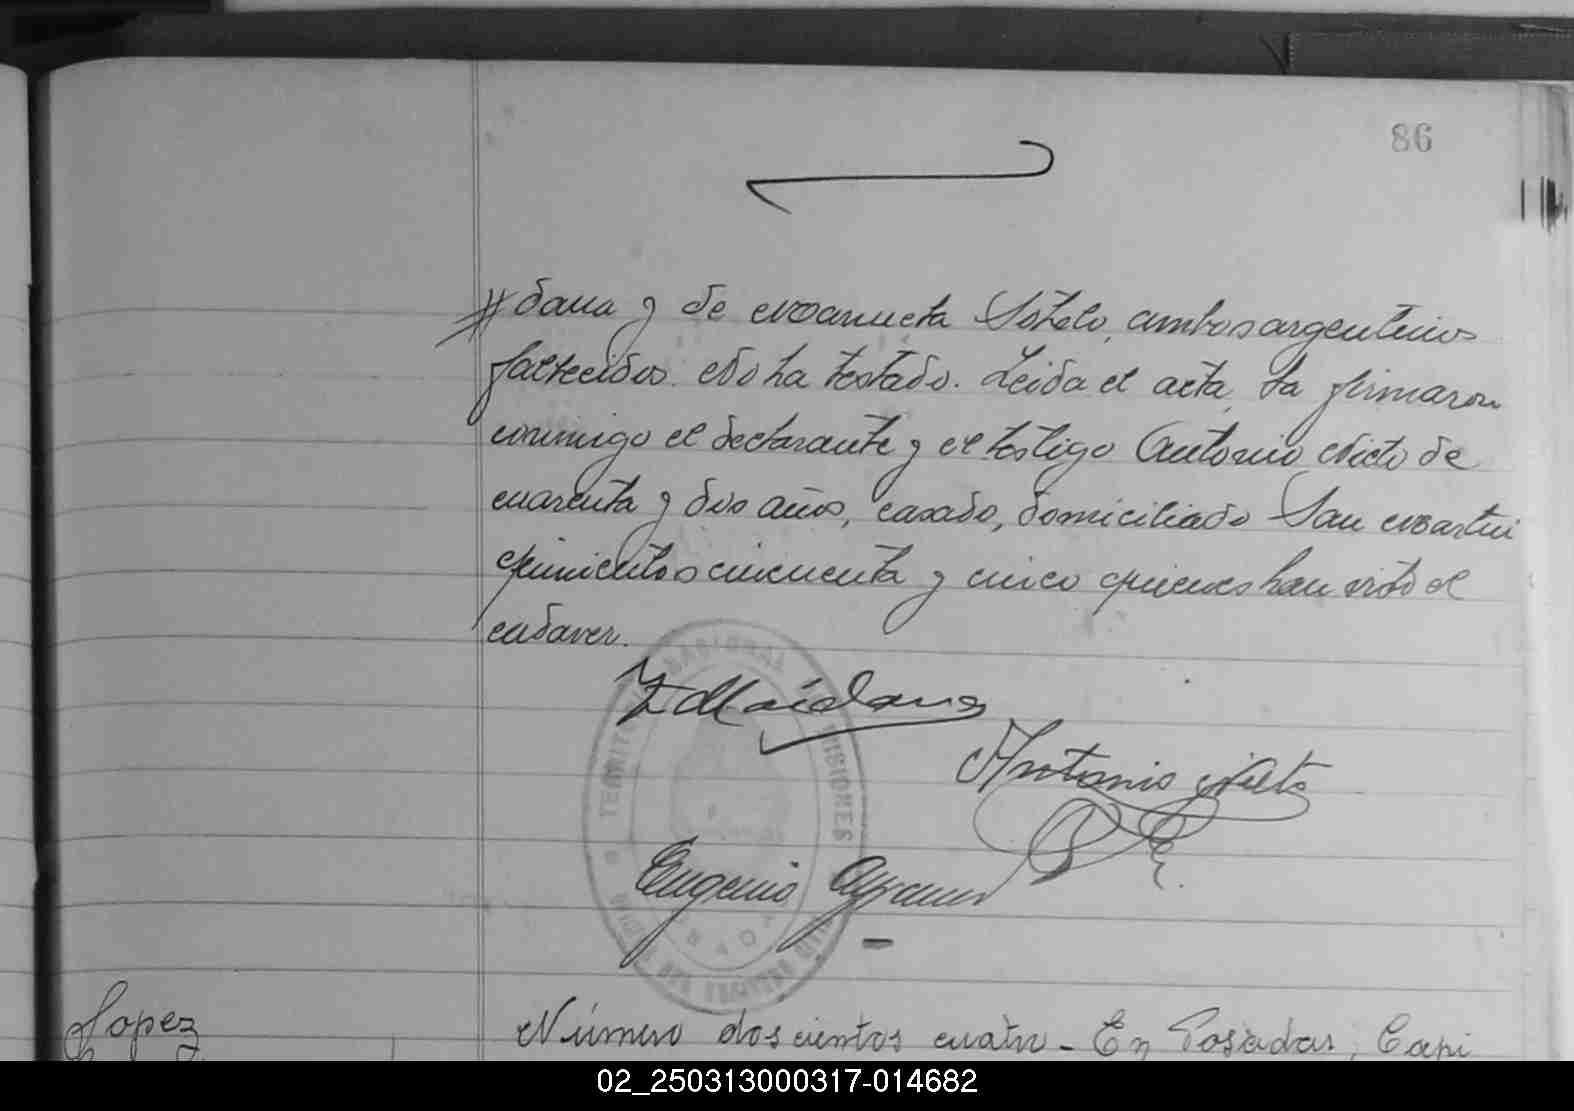 86
dana y de Manuela Sotelo, ambos argentinos
fallecidos. No ha testado. Leida el acta, la firmaron
conmigo el declarante y el testigo Antonio Nieto de
cuarenta y dos años, casado, domiciliado San Martin
quinientos cincuenta y cinco quienes han visto el
cadaver.
Maidana
Antonio Nieto
Eugenio
TERRITORIO NACIONAL DE MISIONES
POSADAS
Lopez
Número doscientos cuatro - En Posadas, Capi
02_250313000317-014682